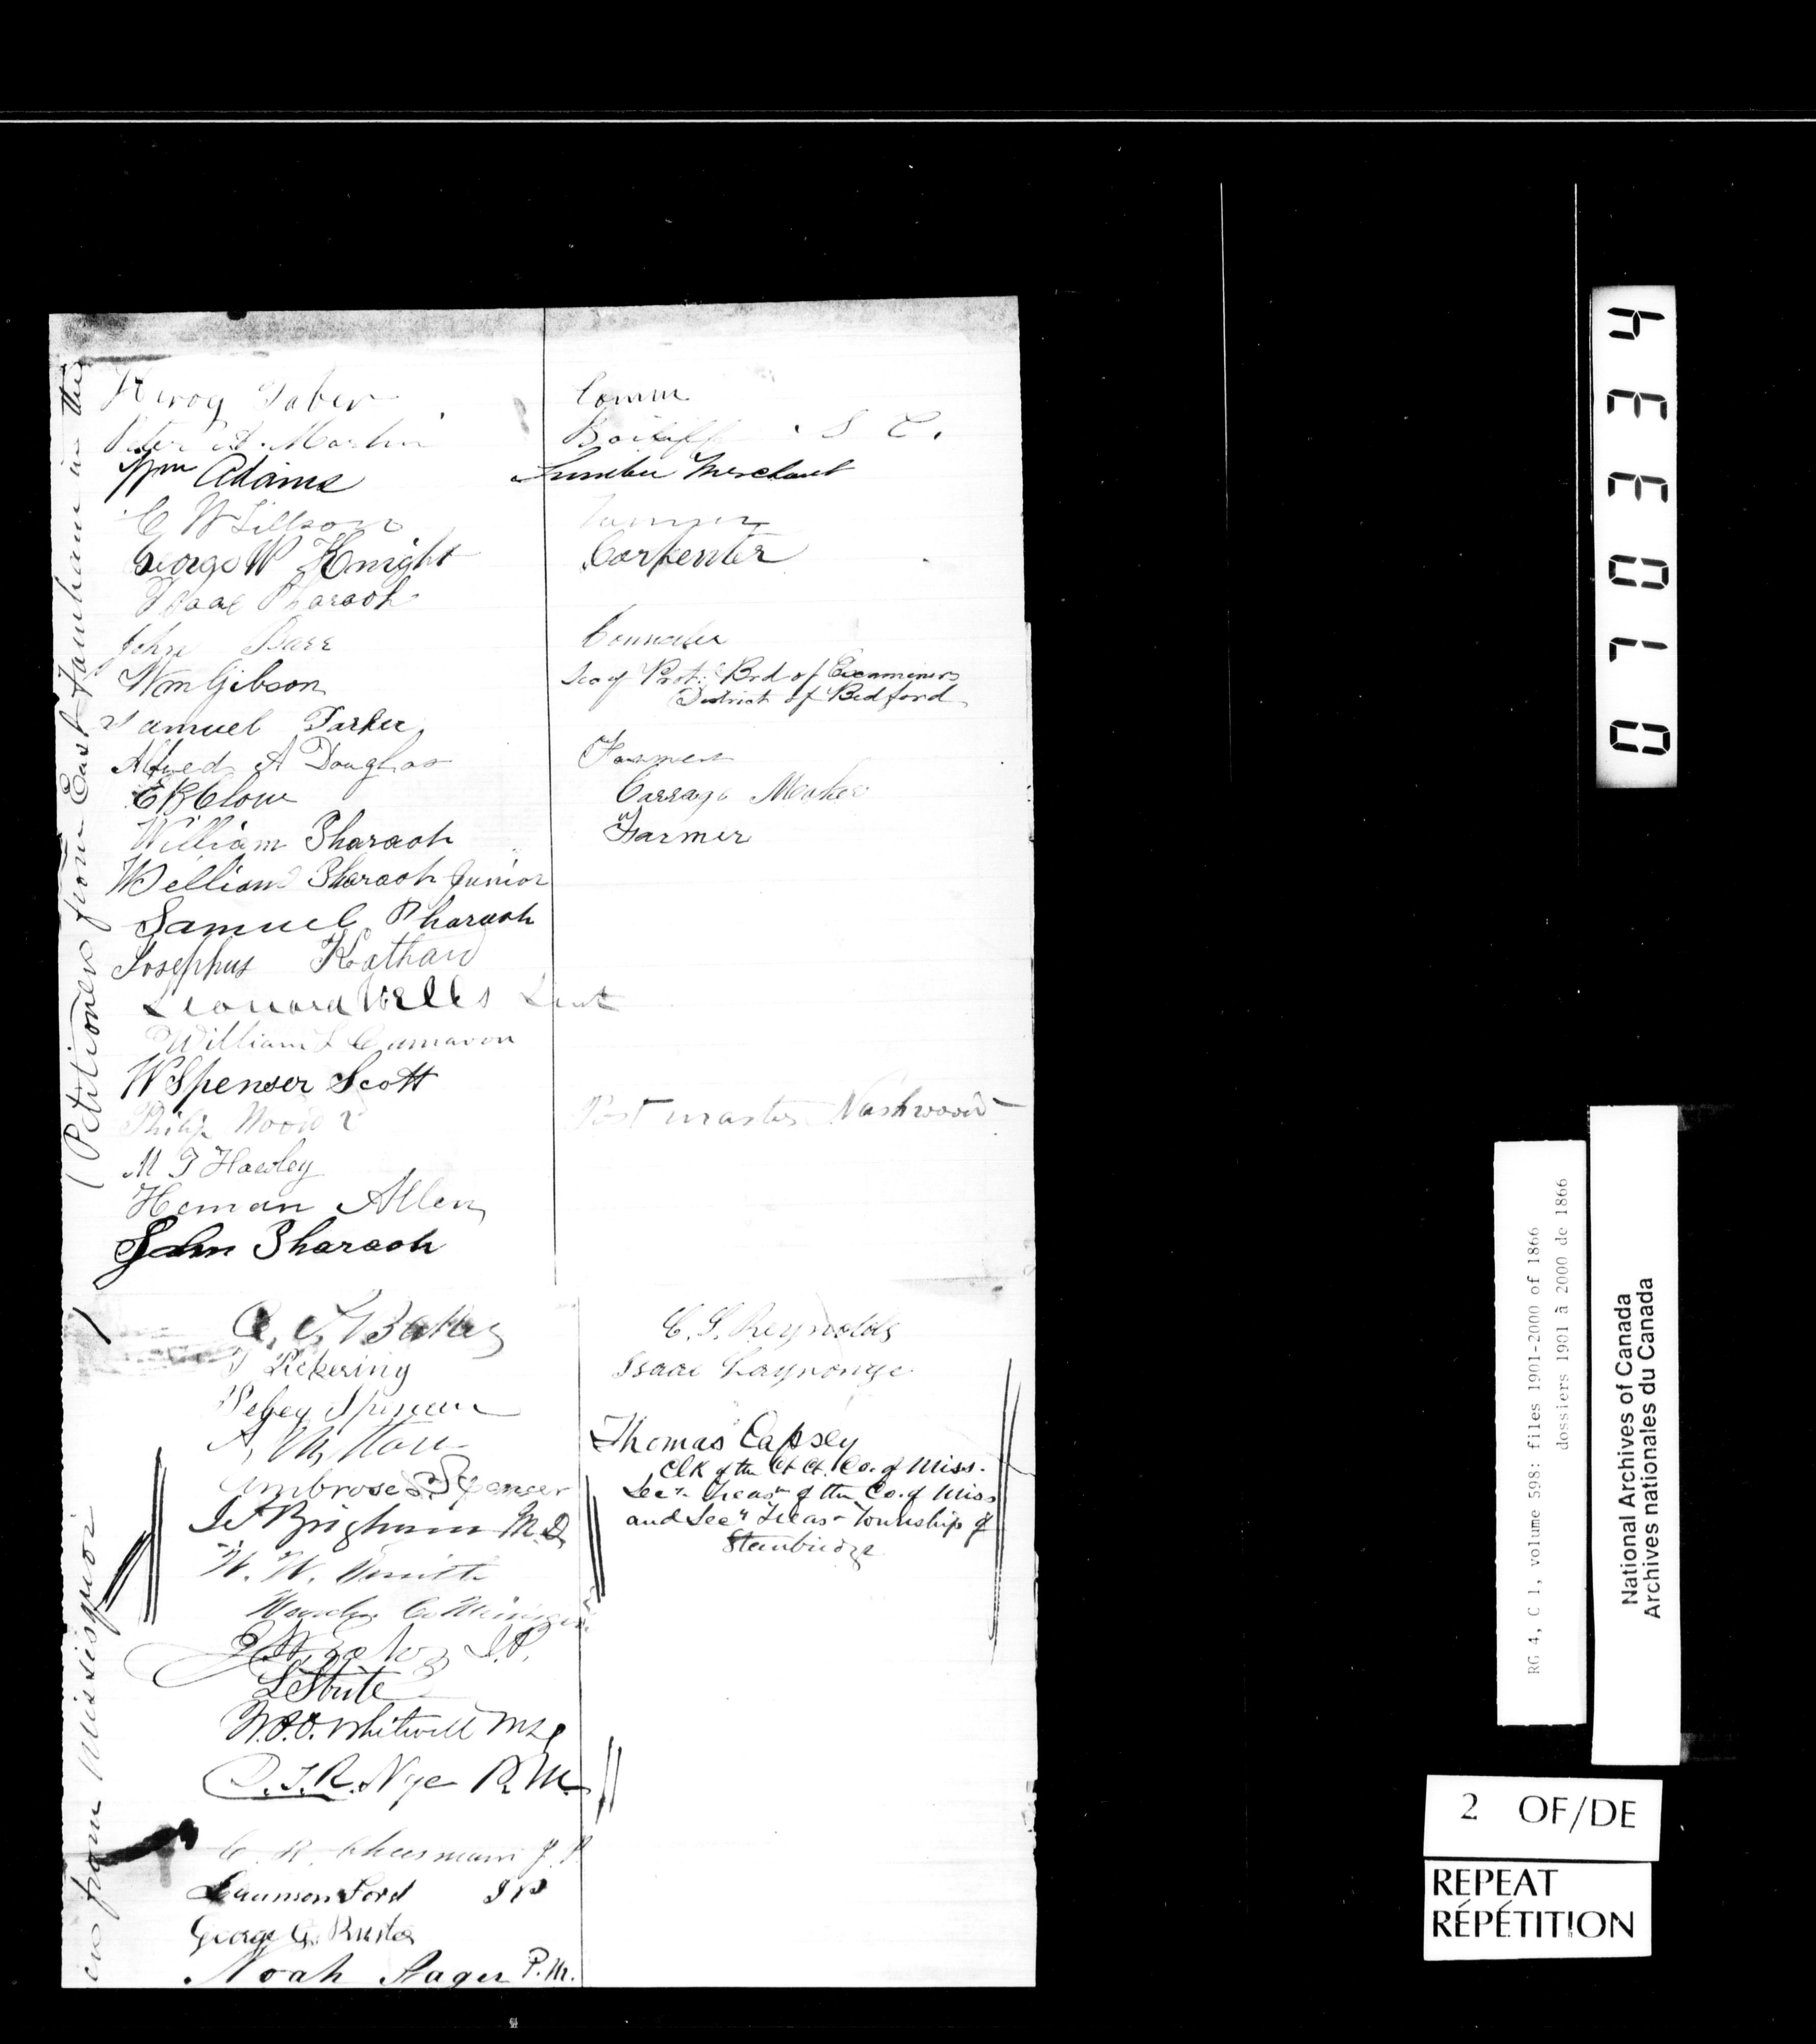 (Petitioners from East Farnham in the
Taber Comm
Peter A. Martin Bailiff S C.
Wm Adams Lumber Merchant
C W Lillson
George W Knight Carpenter
Isaac Pharaoh
John Barr Councelor
Wm Gibson Secy Prot. Brd of Examiners
District of Bedford
Samuel Parker
Alfred A Douglas Farmer
E B Clow Carrage Maker
William Pharaoh Farmer
William Pharaoh Junior
Samuel Pharaoh
Josephus Kathan
Leonard Wells Lieut
William L
W Spenser Scott
Philip Wood Post master Nashwood
M T Hawley
Heman Allen
John Pharaoh
from Missisquoi
C. S. Reynolds
Pickering Isaac
Spencer
A.
Thomas Capsey
Clk of the Ct Ct. Co. of Miss.
Ambrose S. Spencer
Secy Treasr of the Co. of Miss
Brigham M.D.
and Secy Treasr Township of
Stanbridge
W. W. Smith
J.P.
W.O. Whitwell
D.T.R. Nye P.M.
C. R. Cheesman J.P.
Ford J P
George G.
Noah Sager P.M.
0 7 0 3 3 4
RG 4, C 1, volume 598: files 1901-2000 of 1866
dossiers 1901 à 2000 de 1866
National Archives of Canada
Archives nationales du Canada
2 OF/DE
REPEAT
RÉPÉTITION